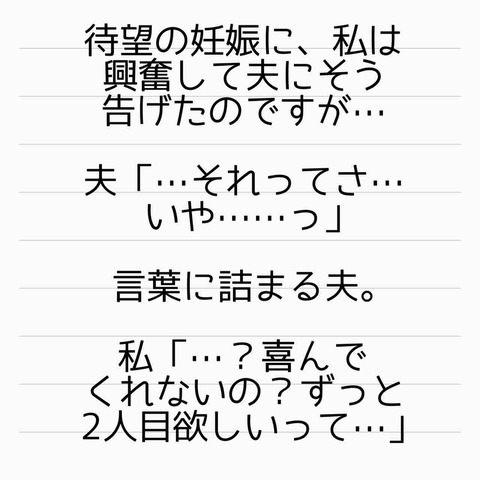 待望の妊娠に、私は
興奮して夫にそう
告げたのですが…
夫「…それってさ…
いや……っ」
言葉に詰まる夫。
私「…？喜んで
くれないの？ずっと
2人目欲しいって…」